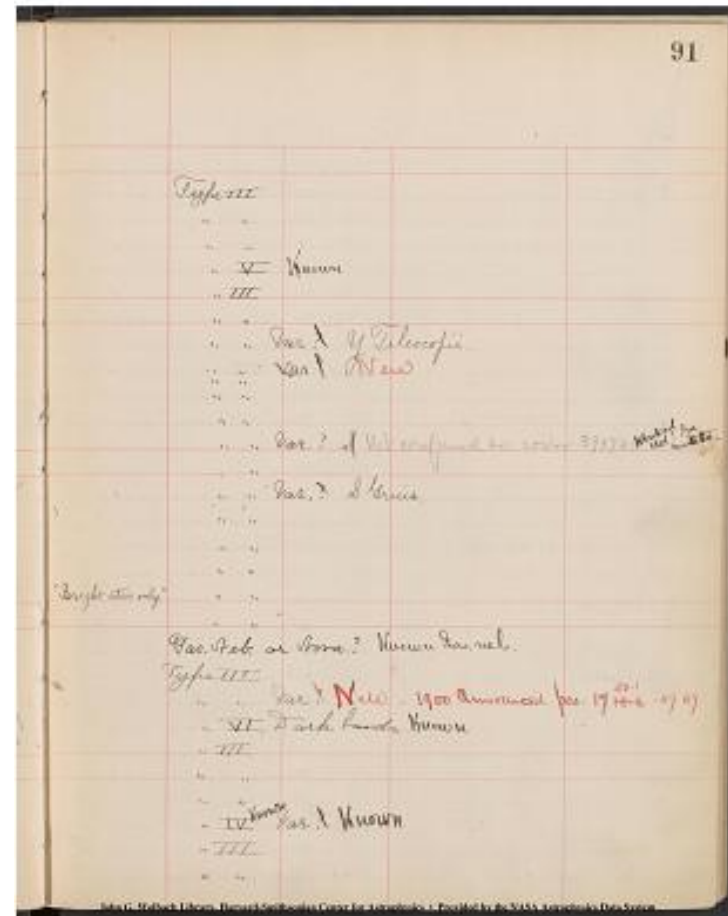 91
Type III
" "
" "
" V Known
" III
" "
" " Var. ? Y Telescopii
" " Var. ? New
" "
" "
" "
" " Var. ? of Not confirmed
" "
" " Var. ? S Gruis
" "
" "
" "
"Bright star only" " "
" "
Gas. Neb. or Nova? Known Gas. neb.
Type III
" " Var. ? New 1900 Announced
" VI Dark bands Known
" III
" "
" "
" IV Known Var. ? Known
" III
" "
John G. Wolbach Library, Harvard-Smithsonian Center for Astrophysics • Provided by the NASA Astrophysics Data System